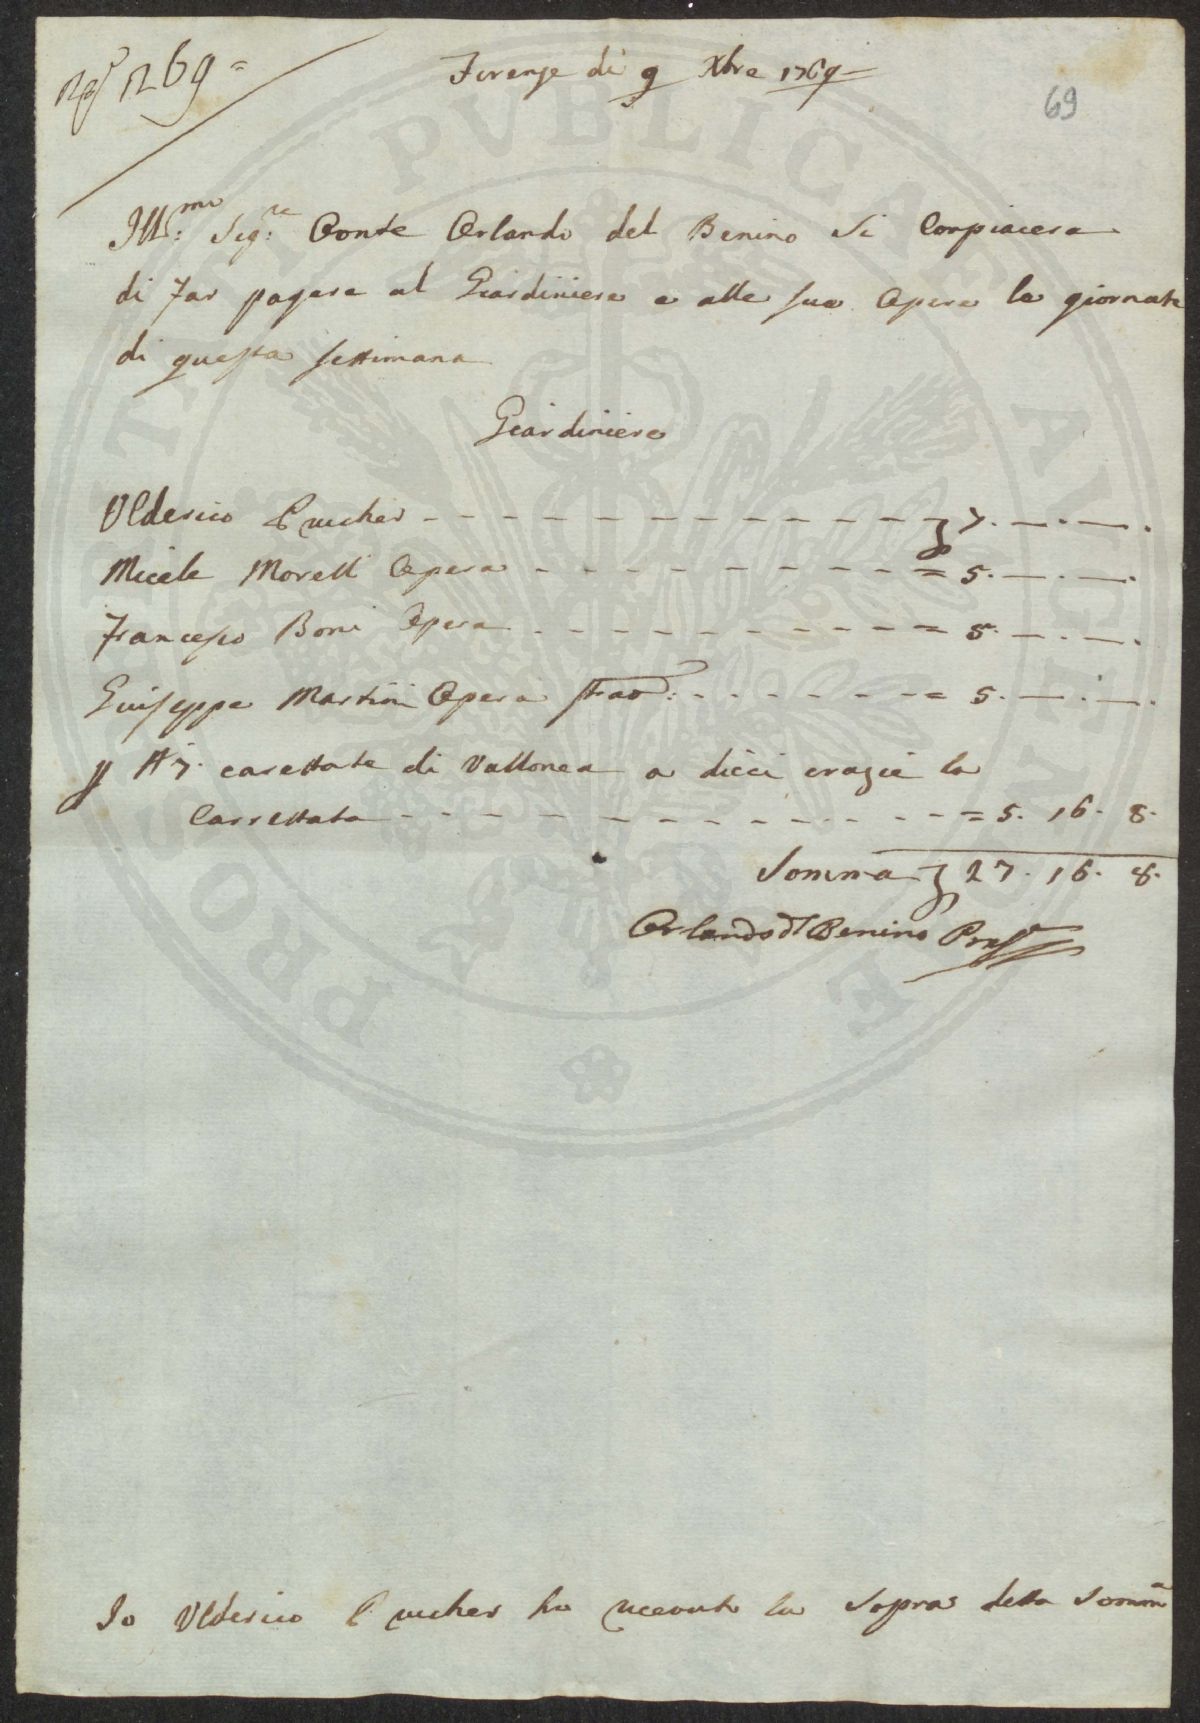 N 69 =
Firenze di 9 Xbre 1769
69
Ill:mo Sig:re Conte Orlando del Benino Si Conpiacera
di far pagare al Giardiniere e alle sue Opere le giornate
di questa settimana
Giardiniere
Ulderico Prucher - - - - - - - - 7. —. —.
Micele Morelli Opera - - - - - - = 5. —. —.
Francesco Boni Opera - - - - - - = 5. —. —.
Guiseppe Martini Opera strao: - - - - = 5. —. —.
P N 7. carettate di Vallonea a dieci crazie la
Carrettata - - - - - - - - = 5. 16. 8.
Somma 27. 16. 8.
Orlando Del Benino
Io Ulderico Prucher ho riceuto la Sopra detta Somma